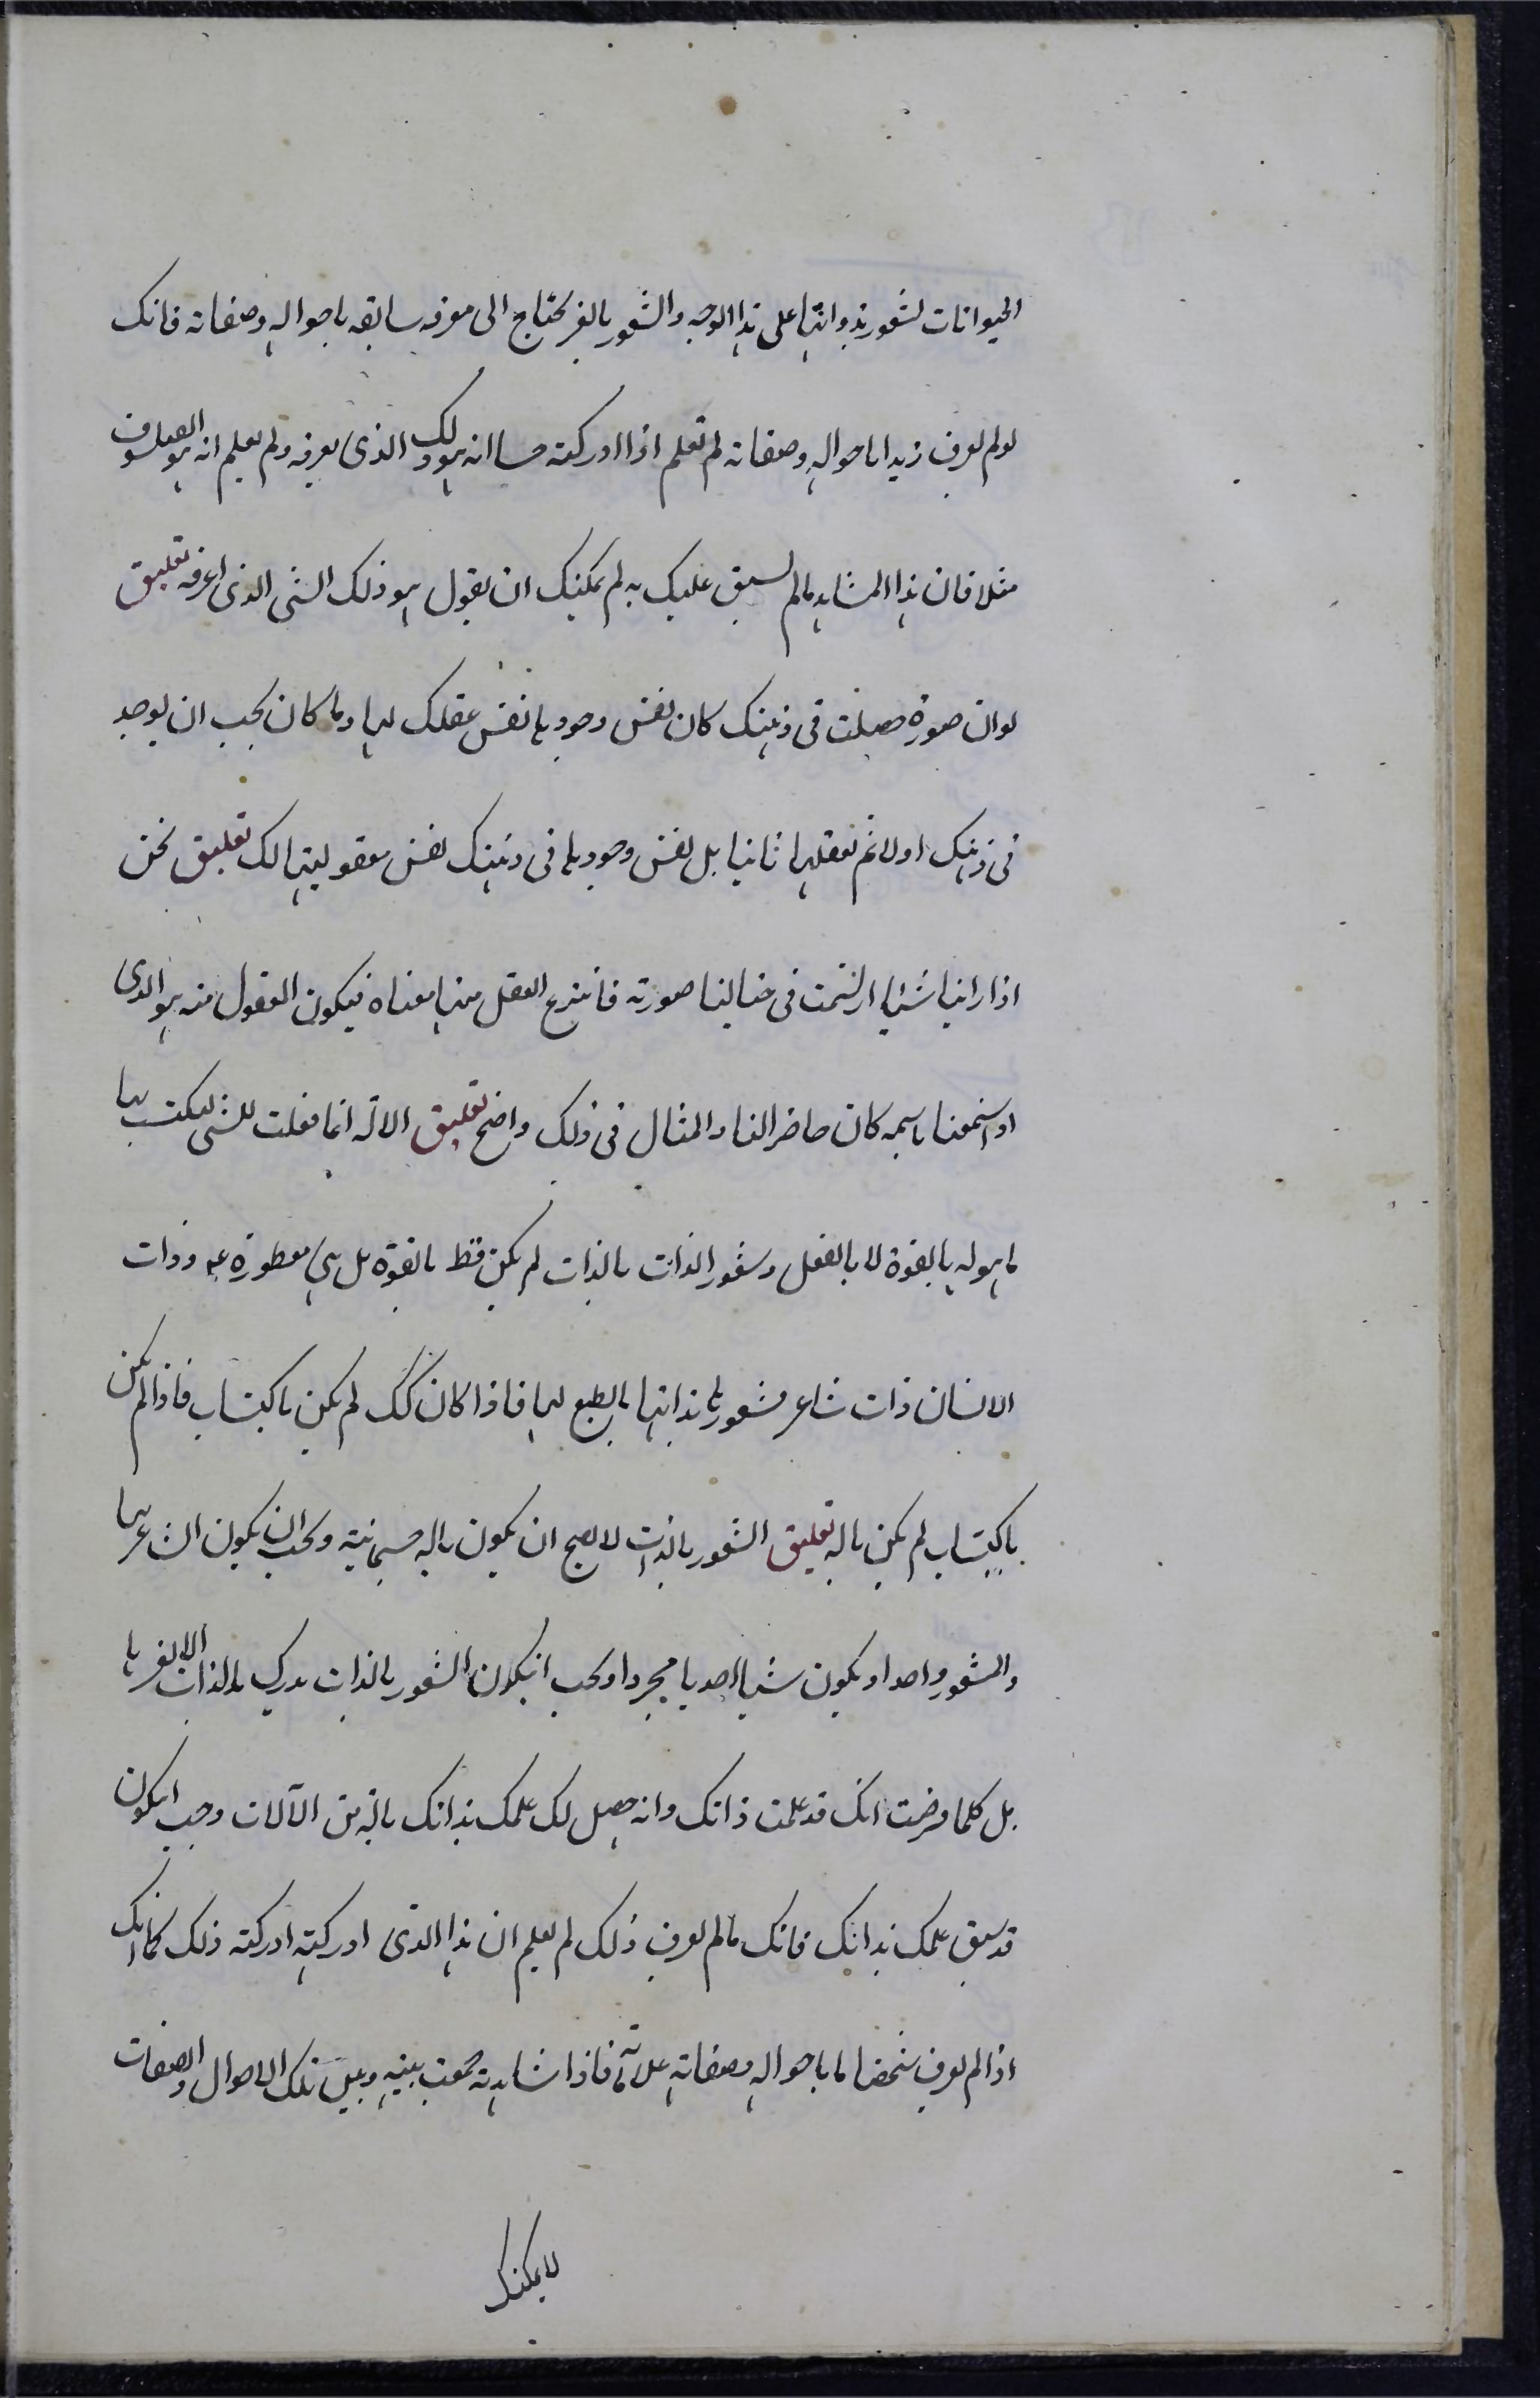 الحيوانات لشعور بذواتها على هذا الوجه والشعور بالغير يحتاج الى معرفه سابقه باحواله وصفاته فانك
لو لم تعرف زيدا باحواله وصفاته لم تعلم اذا ادركته حسا انه هو ذلك الذى تعرفه ولم تعلم انه هو الفيلسوف
مثلا فان هذا المشاهد ما لم يسبق علمك به لم يمكنك ان تقول هو ذلك الشى الذى اعرفه تعليق
لو ان صورة حصلت فى ذهنك كان نفس وجودها نفس عقلك لها وما كان يجب ان يوجد
فى ذهنك اولا ثم تعقلها ثانيا بل نفس وجودها فى ذهنك نفس معقوليتها لك تعليق نحن
اذا راينا شيئا ارتسمت فى خيالنا صورته فانتزع العقل منها معناه فيكون المعقول منه هو الذى
اذا سمعنا باسمه كان حاضرا لنا والمثال فى ذلك واضح تعليق الالة انما فعلت للشى ليكتسب بها
ما هو له بالقوة لا بالفعل وشعور الذات بالذات لم يكن قط بالقوة بل هى مفطورة عليه وذات
الانسان ذات شاعر فشعورها بذاتها بالطبع لها فاذا كان كك لم يكن باكتساب فاذا لم يكن
باكتساب لم يكن باله تعليق الشعور بالذات لا يصح ان يكون باله جسمانية ويجب ان يكون الشاعر بها
والشعور واحدا ويكون شيئا احديا مجردا ويجب ان يكون الشعور بالذات يدرك بالذات لا بغيرها
بل كلما فرضت انك قد علمت ذاتك وانه حصل لك علمك بذاتك بالة من الآلات وجب ان يكون
قد سبق علمك بذاتك فانك ما لم تعرف ذلك لم تعلم ان هذا الذى ادركته ادركته ذلك كما انك
اذا لم تعرف شخصا ما باحواله وصفاته وعلاماته فاذا شاهدته جمعت بينه وبين تلك الاحوال والصفات
لا يمكنك